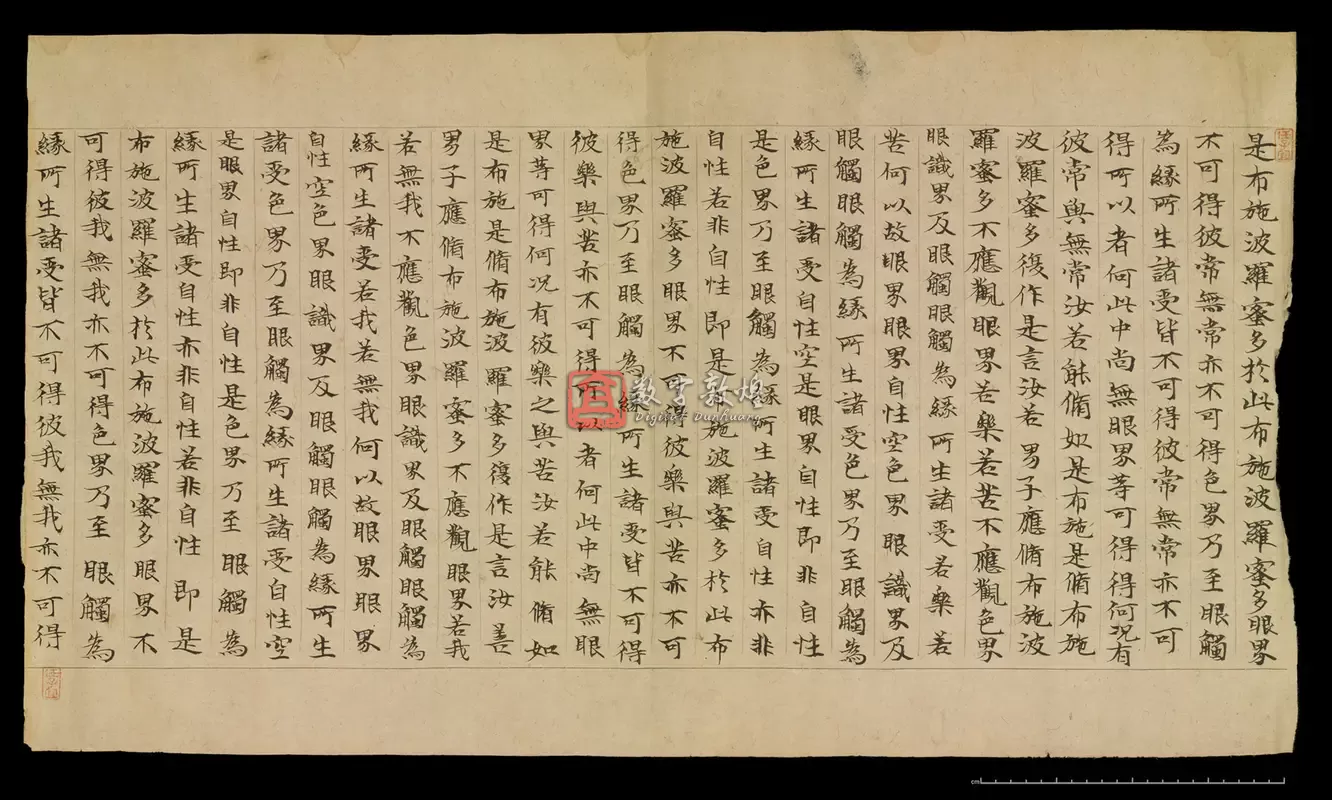 是布施波羅蜜多於此布施波羅蜜多眼界
不可得彼常無常亦不可得色界乃至眼觸
為緣所生諸受皆不可得彼常無常亦不可
得所以者何此中尚無眼界等可得得何况有
彼常與無常汝若能脩如是布施是脩布施
波羅蜜多復作是言汝若男子應脩布施波
羅蜜多不應觀眼界若樂若苦不應觀色界
眼識界及眼觸眼觸為緣所生諸受若樂若
苦何以故眼界眼界自性空色界眼識界及
眼觸眼觸為緣所生諸受色界乃至眼觸為
緣所生諸受自性空是眼界自性即非自性
是色界乃至眼觸為緣所生諸受自性亦非
自性若非自性即是布施波羅蜜多於此布
施波羅蜜多眼界不可得彼樂與苦亦不可
得色界乃至眼觸為緣所生諸受皆不可得
彼樂與苦亦不可得所以者何此中尚無眼
界等可得何况有彼樂之與苦汝若能脩如
是布施是脩布施波羅蜜多復作是言汝善
男子應脩布施波羅蜜多不應觀眼界若我
若無我不應觀色界眼識界及眼觸眼觸為
緣所生諸受若我若無我何以故眼界眼界
自性空色界眼識界及眼觸眼觸為緣所生
諸受色界乃至眼觸為緣所生諸受自性空
是眼界自性即非自性是色界乃至眼觸為
緣所生諸受自性亦非自性若非自性即是
布施波羅蜜多於此布施波羅蜜多眼界不
可得彼我無我亦不可得色界乃至眼觸為
緣所生諸受皆不可得彼我無我亦不可得
数字敦煌
Digital Dunhuang
cm